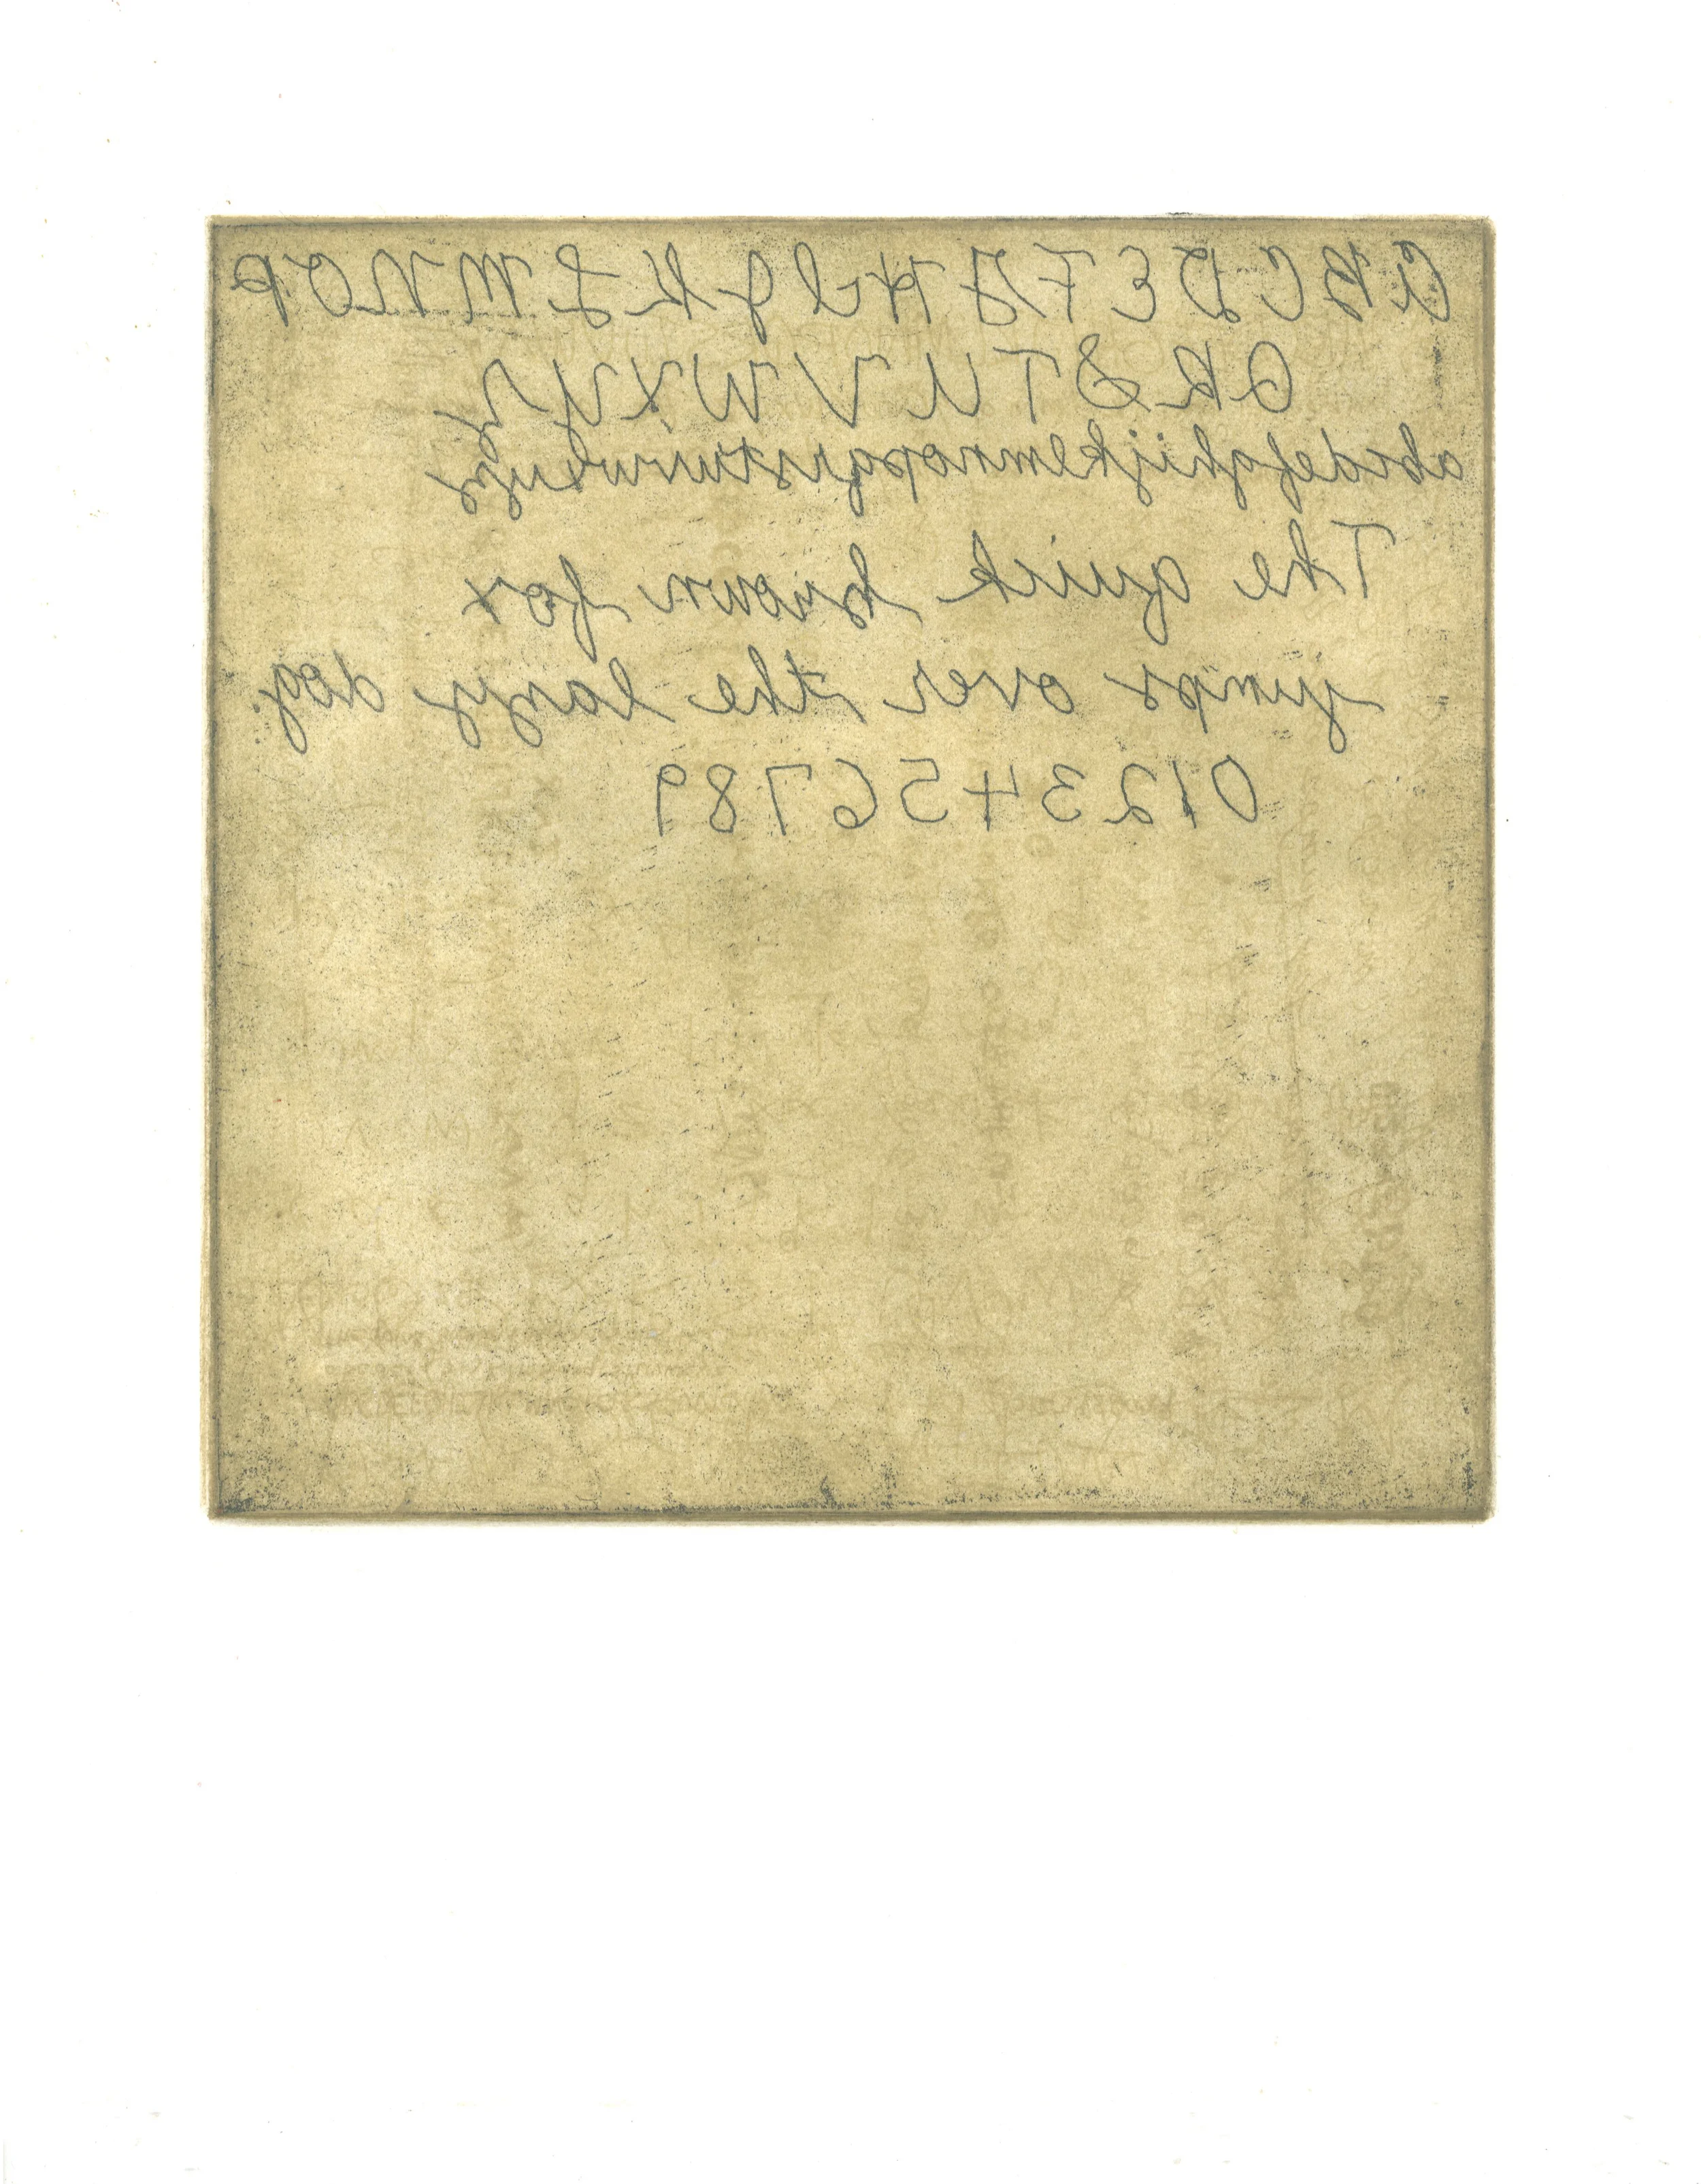 A B C D E F G H I J K L M N O P
Q R S T U V W X Y Z
abcdefghijklmnopqrstuvwxyz
The quick brown fox
jumps over the lazy dog.
0123456789